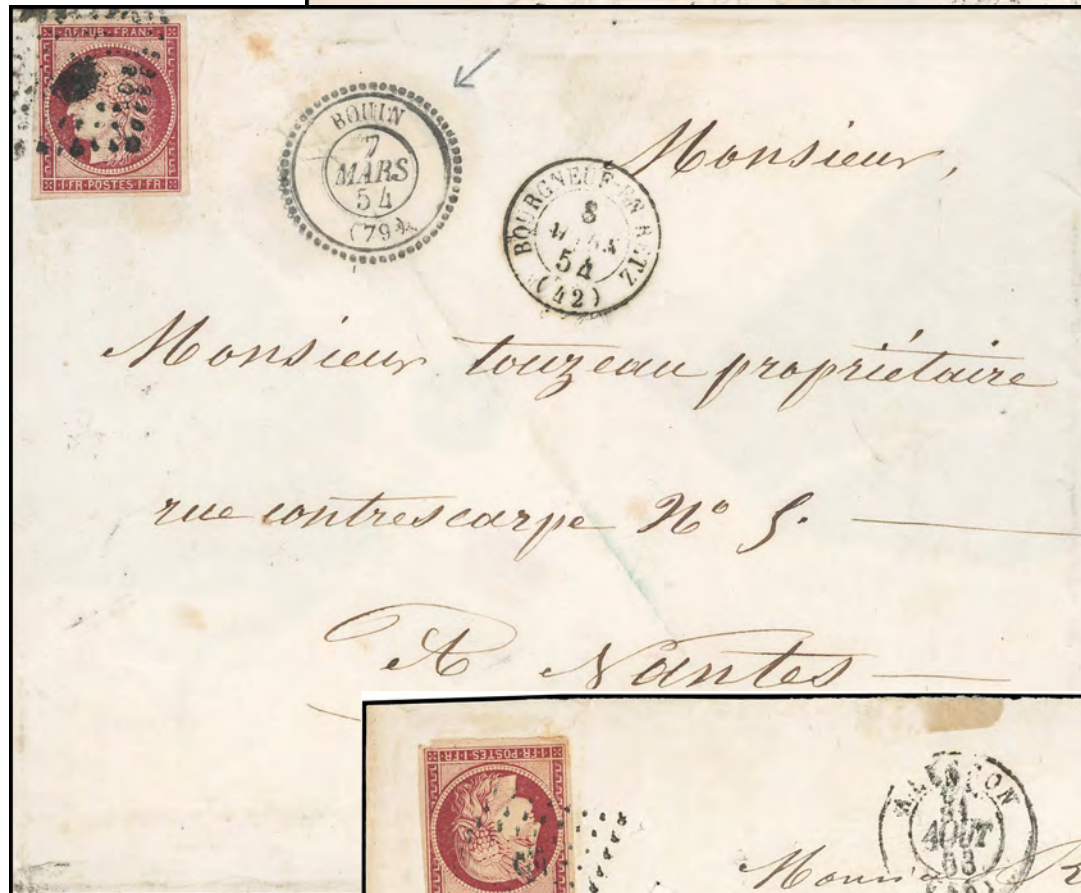 REPUB·FRANC
1·FR·POSTES·1·FR
BOUIN
7
MARS
54
(79)
BOURGNEUF-EN-RETZ
8
MARS
54
(42)
Monsieur,
Monsieur touzeau propriétaire
rue contrescarpe N° 5.
A Nantes
1·FR·POSTES·1·FR
ALENCON
31
AOUT
53